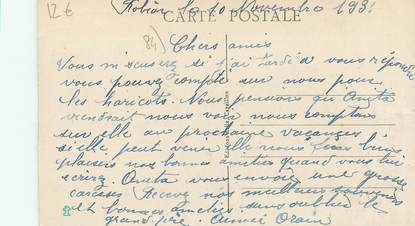 12 €
le 10 Novembre 193
CARTE POSTALE
84
Chers amis
Vous m'excuserez si j'ai tardé a vous répondre
vous pouvez compte sur nous pour
les haricots. Nous pensions qu Anita
viendrait nous voir nous comptons
sur elle au prochaine vacances
si elle peut venir elle nous feras bien
plaisirs nos bonnes amities quand vous lui
ecrirez. Anita vous envoie une grosse
caresses Recevez nos meilleurs souvenirs
et bonnes amities sans oublier le
grand père. Aimée